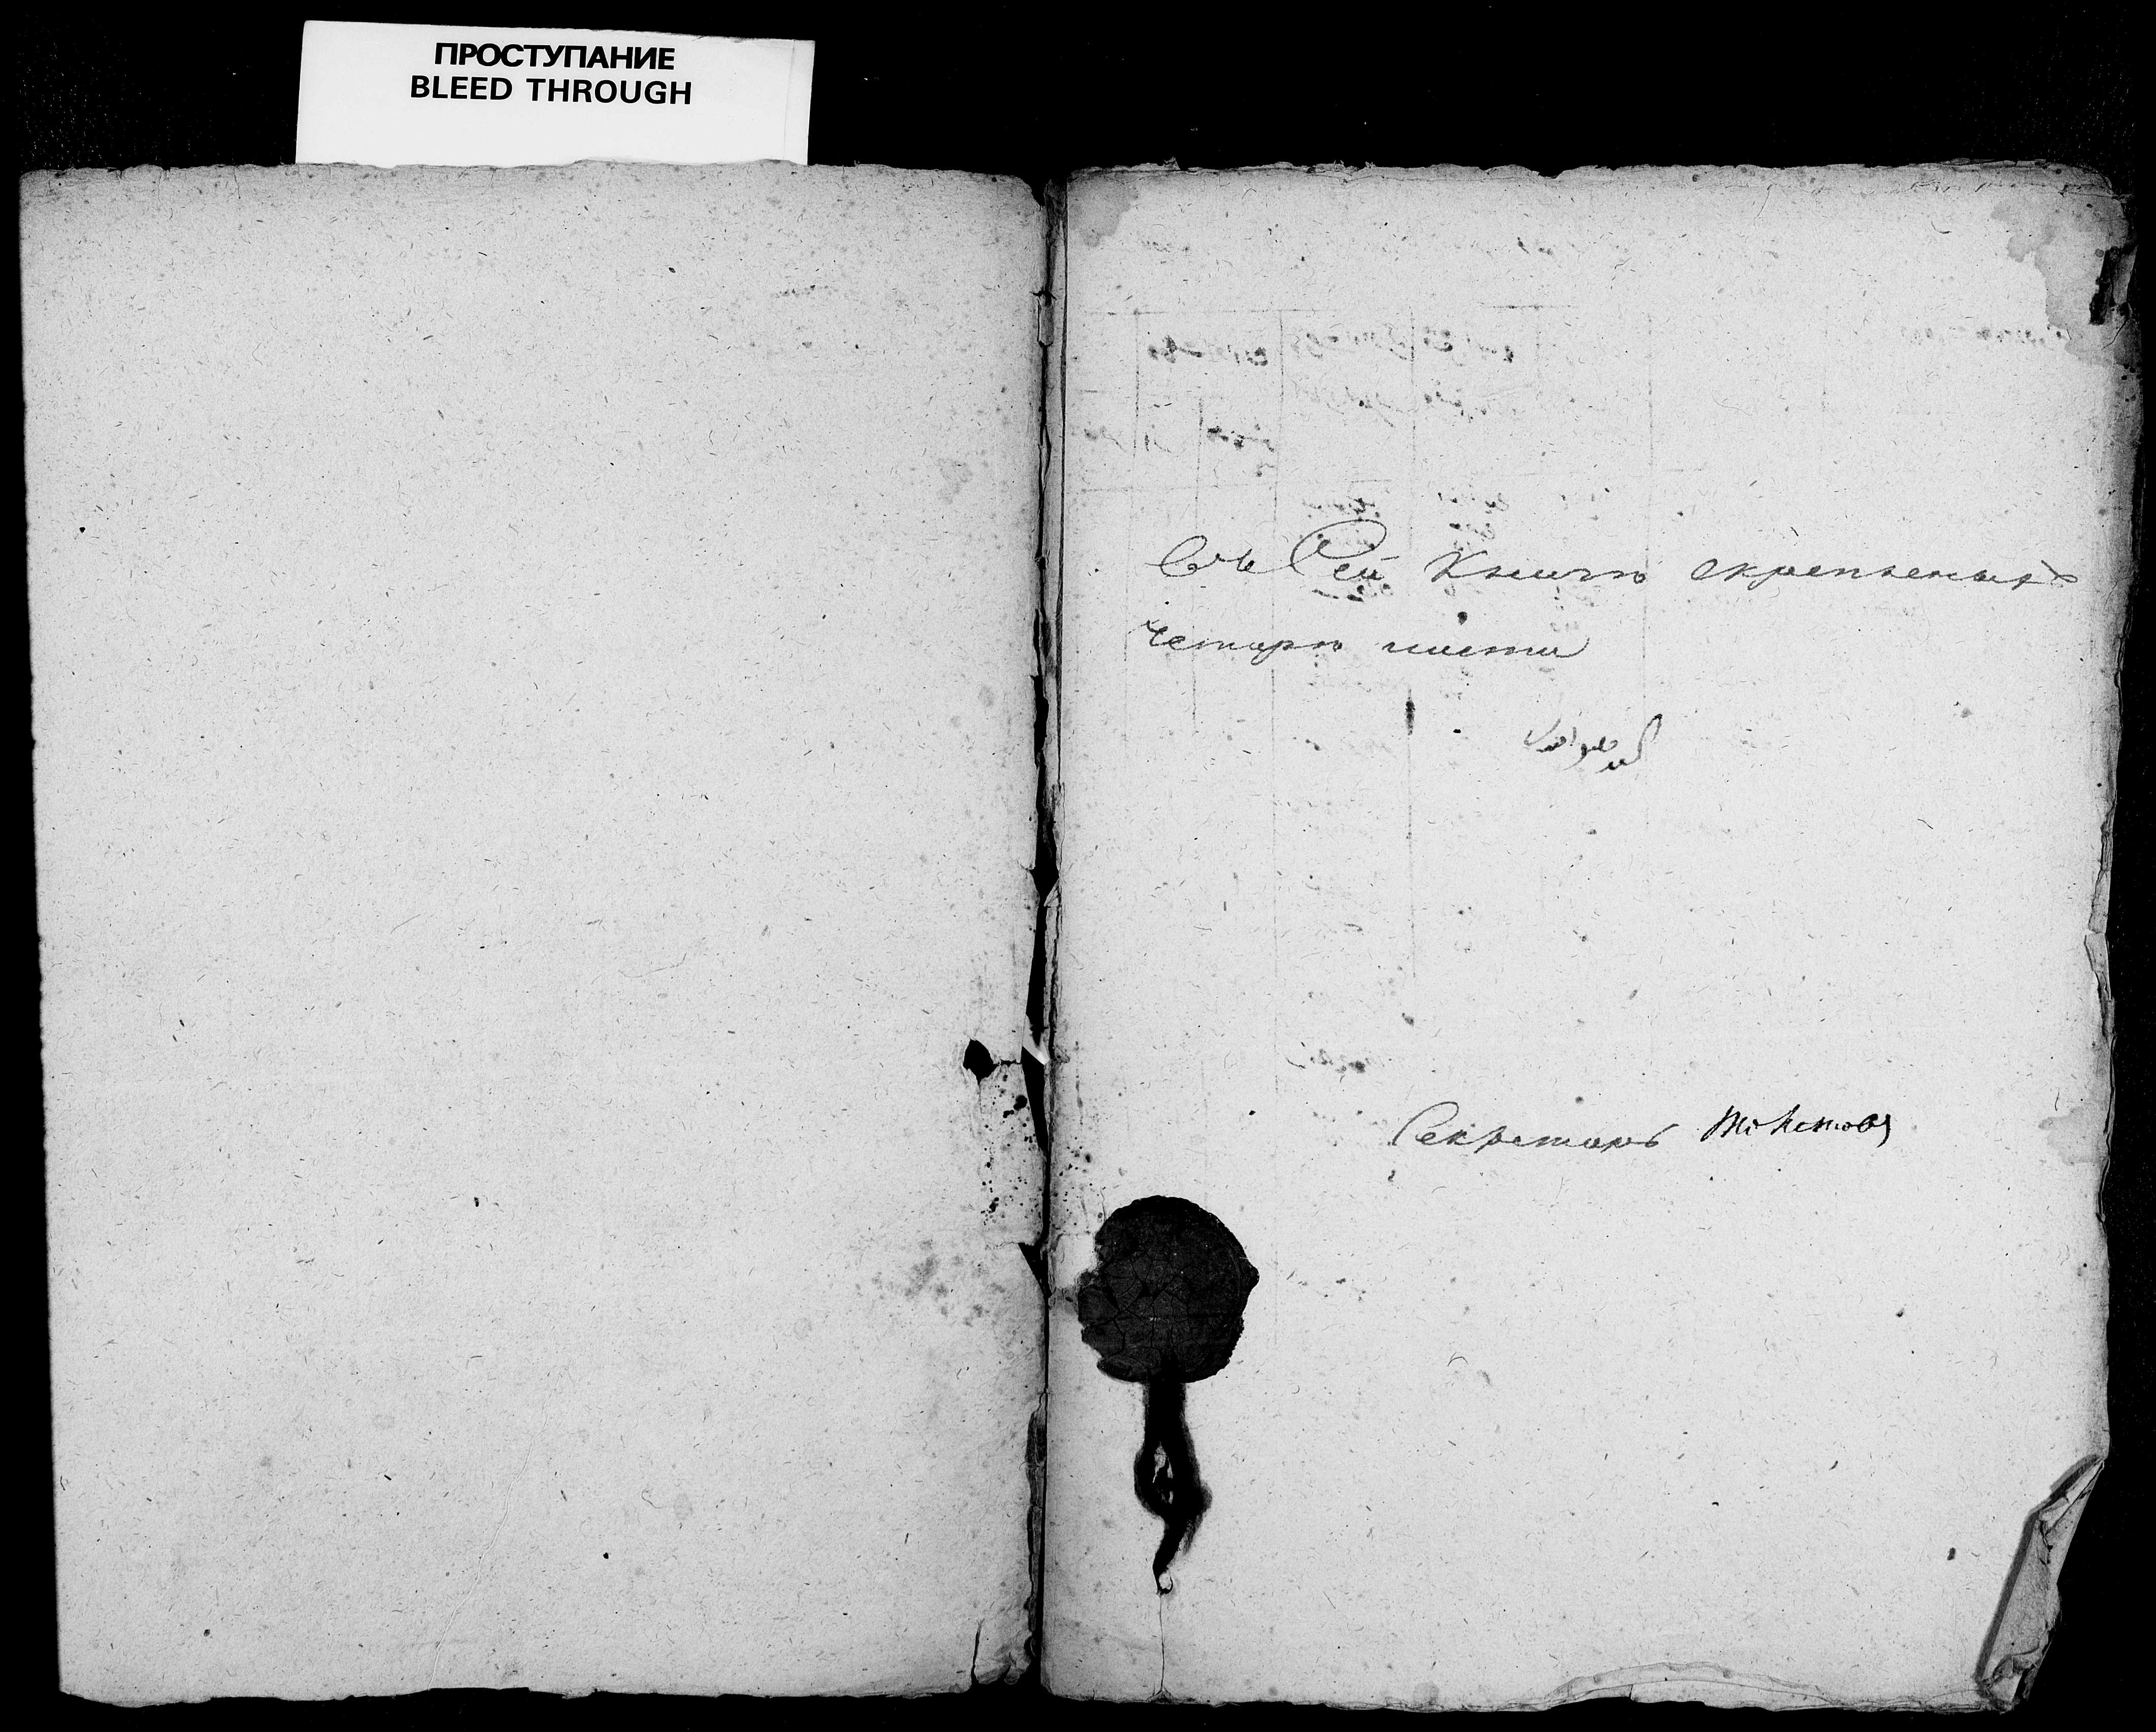 ПРОСТУПАНИЕ
BLEED THROUGH
Въ Сей Книгѣ скрепленыхъ
четыре листа
Секретарь